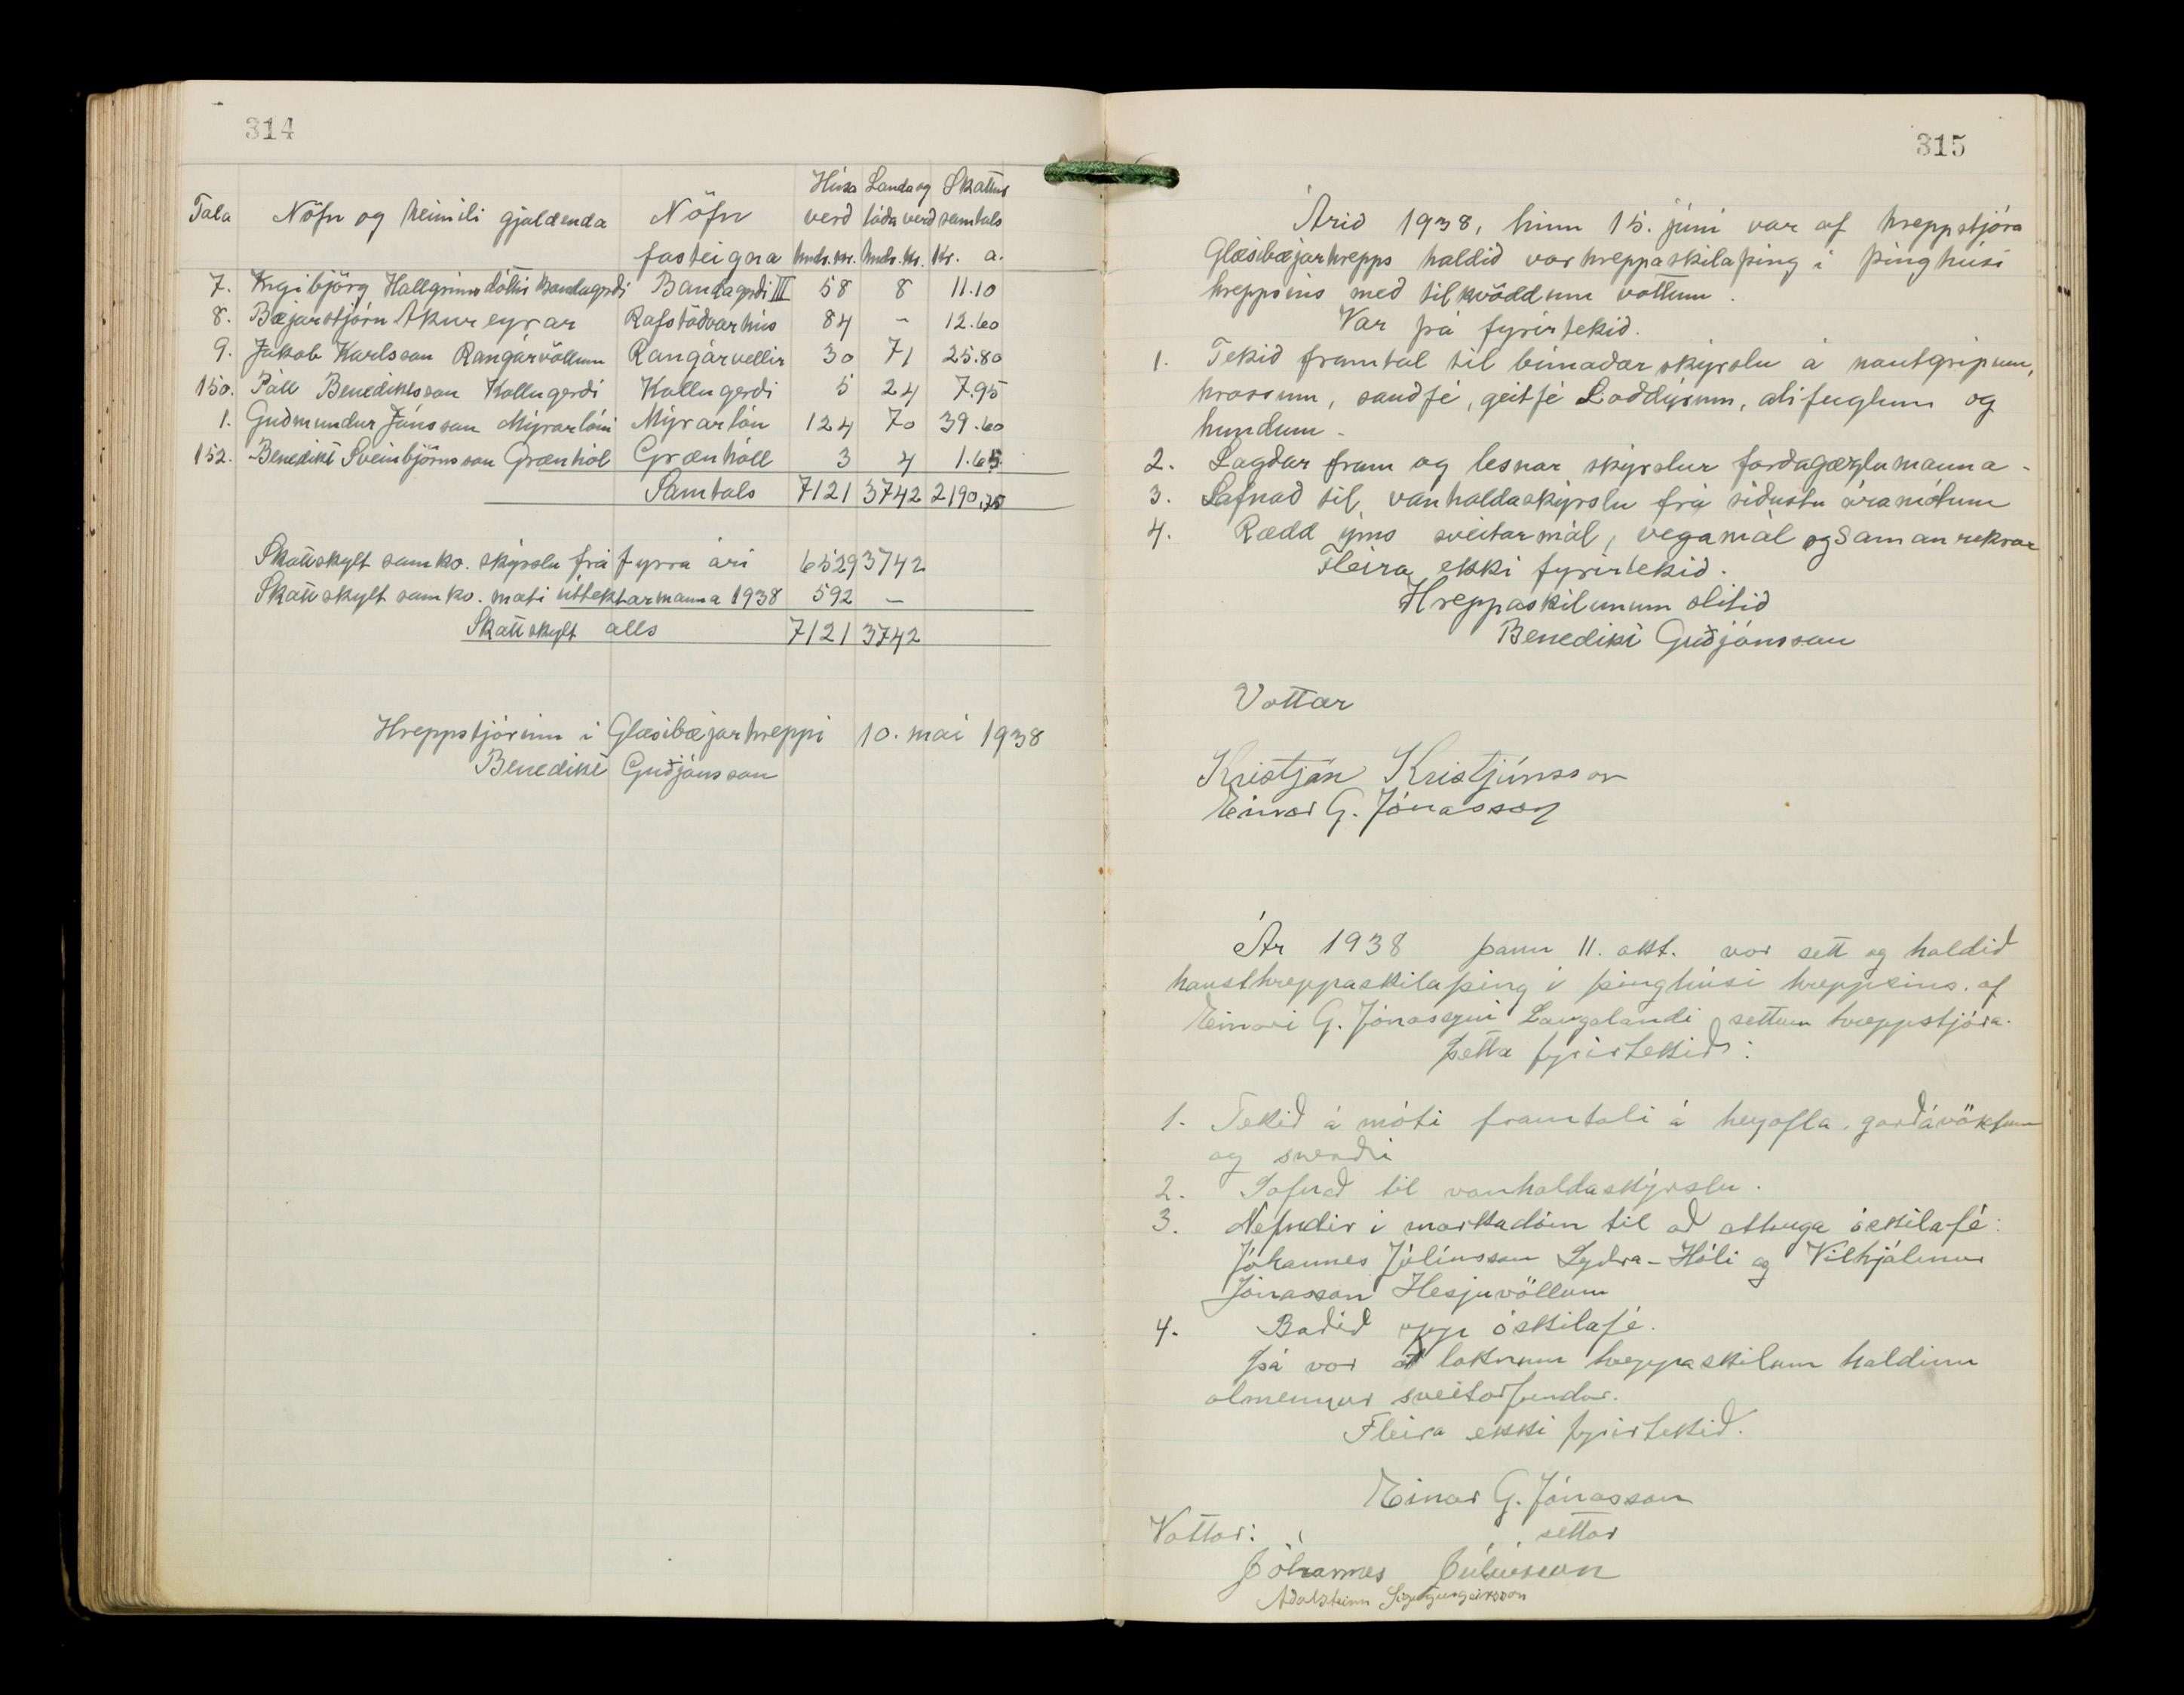 314
Tala Nöfn og heimili gjaldenda Nöfn fasteigna Húsa verd hndr. kr. Landa og lóda verd hndr. kr. Skattur samtals Kr. a.
7. Ingibjörg Hallgrimsdóttir Bandagerdi Bandagerdi III 58 8 11.10
8. Bæjarstjórn Akureyrar Rafstödvarhús 84 - 12.60
9. Jakob Karlsson Rangárvöllum Rangárvellir 30 71 25.80
150. Páll Benediktsson Kollugerdi Kollugerdi 5 24 7.95
1. Gudmundur Jónsson Mýrarlóni Mýrarlón 124 70 39.60
152. Benedikt Sveinbjörnsson Grænhól Grænhóll 3 4 1.65
Samtals 7121 3742 2190,75
Skattskylt samkv. skýrslu frá fyrra ári 6529 3742
Skattskylt samkv. mati úttektarmanna 1938 592 -
Skattskylt alls 7121 3742
Hreppstjórinn i Glæsibæjarhreppi 10. mai 1938
Benedikt Guðjónsson
315
Árid 1938, hinn 15. júni var af hreppstjóra
Glæsibæjarhrepps haldid vorhreppaskilaþing i þinghúsi
hreppsins med tilkvöddum vottum.
Var þá fyrirtekid.
1. Tekid framtal til búnadarskýrslu á nautgripum,
hrossum, saudfé, geitfé Loddýrum, alifuglum og
hundum.
2. Lagdar fram og lesnar skýrslur fordagæzlumanna.
3. Safnad til vanhaldaskýrslu frá sidustu áramótum
4. Rædd ýms sveitarmál, vegamál og
Fleira ekki fyrirtekid.
Hreppaskilunum slitid
Benedikt Guðjónsson
Vottar
Kristján Kristjánsson
Einar G. Jónasson
Ár 1938 þann 11. okt. var sett og haldið
hausthreppaskilaþing í þinghúsi hreppsins. af
Einari G. Jónassyni Laugalandi settum hreppstjóra.
Þetta fyrirtekið:
1. Tekið á móti framtali á heyafla, garðávöxtum
og sverði
2. Safnað til vanhaldaskýrslu.
3. Nefndir í markadóm til að athuga óskilafé:
Jóhannes Júlíusson Sydra-Hóli og Vilhjálmur
Jónasson Hesjuvöllum
4. Boðið upp óskilafé.
Þá var að loknum hreppaskilum haldinn
almennur sveitarfundur.
Fleira ekki fyrirtekið.
Einar G. Jónasson
settur
Vottar:
Jóhannes Júlíusson
Aðalsteinn Sigurgeirsson